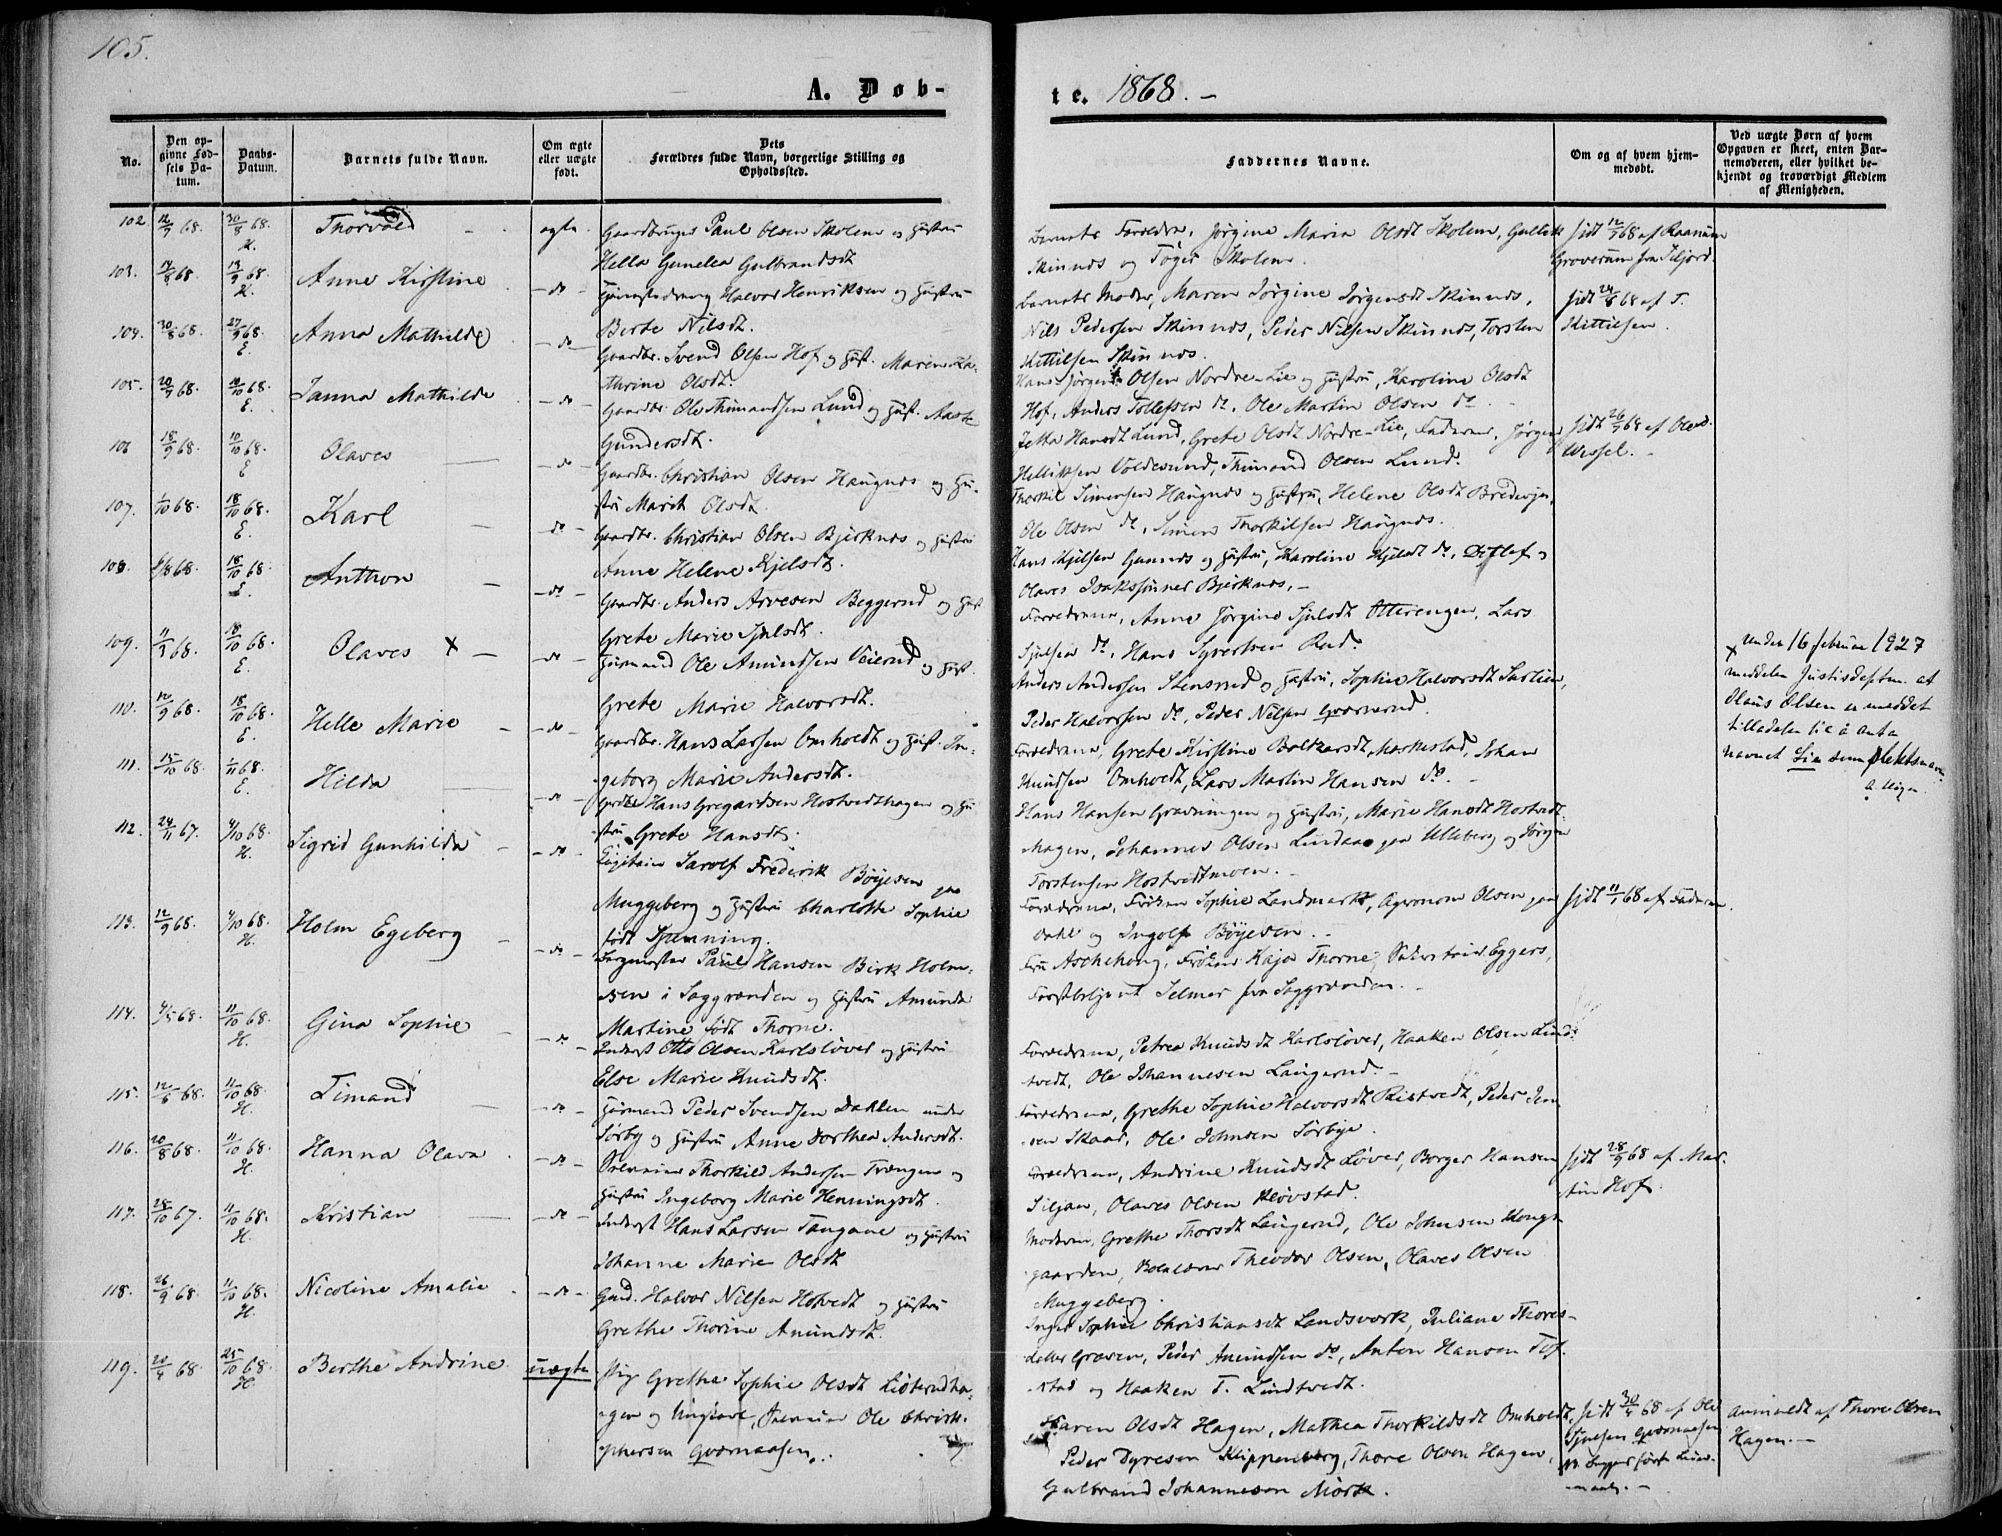 105.
A. Døb-
te. 1868. -
No.
Den op-
givne Fød-
sels Da-
tum.
Daabs-
Datum.
Barnets fulde Navn.
Om ægte
eller uægte
født.
Dets
Forældres fulde Navn, borgerlige Stilling og
Opholdssted.
Faddernes Navne.
Om og af hvem hjem-
medøbt.
Ved uægte Børn af hvem
Opgaven er skeet, enten Bar-
nemoderen, eller hvilket be-
kjendt og troværdigt Medlem
af Menigheden.
102 12/7 68. 30/8 68. K. Thorvald - ægte. Gaardbruger Paul Olsen Skolem og Hustru
Hella Gunelea Gulbrandsdt
Barnets Forældre, Jørgine Maria Olsdt Skolem, Gullik
Skinnæs og Tøger Skolem.
hjdt 12/7 68 af Raanum
Groverum fra Siljord.
103. 68. 13/9 68. K. Anne Kirstine - do - Halvor Henriksen og Hustru
Berte Nilsdt.
Barnets Moder, Maren Jørgine Jørgensdt Skinnæs,
Nils Pedersen Skinnæs, Peder Nilsen Skinnæs, Torsten
Kittilsen Skinnæs.
hjdt 24/8 68 af T.
Kittilsen.
104. 30/8 68. 27/9 68. E. Anna Mathilde - do - Gaardbr. Svend Olsen Hof og Hust. Maren Ka-
thrine Olsdt.
Hans Jørgen Olsen Nordre-Lie og Hustru, Karoline Olsdt
Hof, Anders Tollefsen do, Ole Martin Olsen do -
105. 20/9 68. 10/10 68. E. Janna Mathilde - do - Gaardbr. Ole Thimandsen Lund og Hust. Aaste
Gundersdt.
Jetta Hansdt Lund, Grete Olsdt Nordre-Lie, Faderen, Jørgen
Helliksen Voldesund, Thimand Olsen Lund.
hjdt 26/9 68 af Olea
Wessel. -
106 18/9 68. 10/10 68. E Olaves - do - Gaardbr. Christian Olsen Haugnæs og Hu-
stru Marit Olsdt.
Thorkil Simensen Haugnæs og Hustru, Helene Olsdt
Ole Olsen do, Simen Thorkilsen Haugnæs.
107. 1/10 68. 18/10 68. E. Karl - do - Gaardbr. Christian Olsen Bjerknæs og Hustru
Anne Helene Kjelsdt.
Hans Kjelsen Gunnæs og Hustru, Karoline Kjelsdt do, Ditlef og
Olaves Isakssønner Bjerknæs. -
108. 68. 18/10 68. E. Anthon - do - Gaardbr. Anders Arvesen Beggerud og Hust
Grete Marie Sjulsdt.
Forældrene, Anne Jørgine Sjulsdt Otterengen, Lars
Sjulsen do, Hans Syvertsen Rud.
109. 11/3 68. 18/10 68. E. Olaves X - do - Husmand Ole Amundsen Veierud og Hust.
Grete Marie Halvorsdt.
Anders Andersen Stensrud og Hustru, Sophie Halvorsdt
Peder Halvorsen do, Peder Nilsen Qværnerud.
x under 16 februar 1927
meddeler Justisdeptm. at
Olaus Olsen er meddelt
tilladelse til å anta
navnet Lia som slektsnavn
110. 12/9 68. 18/10 68. E. Helle Marie - do - Gaardbr. Hans Larsen Omholdt og Hust. In-
geborg Marie Andersdt.
Forældrene, Grete Kirstine Mærkestad, Johan
Knudsen Omholdt, Lars Martin Hansen do. -
111. 15/10 68. 1/11 68. E. Hilda - do - Hans Gregardsen Hostvedthagen og Hu
stru Grete Hansdt.
Hans Hansen Gravningen og Hustru, Marie Hansdt Hostvedt
hagen, Johannes Olsen Lindaas paa Ulleberg og Jørgen
Torstensen Hostvedtmoen. -
112. 24/11 67. 4/10 68. H. Sigrid Gunhilda - do - Capitain Sarolf Frederik Bøyesen paa
Muggeberg og Hustru Charlotte Sophie
født Hjanning.
Forældrene, Frøken Sophie Landmark, Agronom Olsen paa
Dahl og Ingolf Bøyesen. -
hjdt 11/1 68 af Faderen.
113. 12/9 68. 4/10 68. H. Holm Egeberg - do - Bergmester Paul Hansen Birk Holm-
sen i Saggrænden og Hustru Amunda
Martine født Thorne.
Fru Aschehoug, Frøken Kaja Thorne, Eggers,
Forstbetjent Selmer fra Saggrænden. -
114. 4/5 68. 11/10 68. H. Gina Sophie - do - Inderst Otto Olsen Karlsløver og Hustru
Else Marie Knudsdt.
Forældrene, Petrea Knudsdt Karlsløver, Haaken Olsen Lind-
tvedt, Ole Johannesen Langerud. -
115. 12/6 68. 11/10 68. H. Timand - do - Husmand Peder Svendsen Dahlen under
Sørby og Hustru Anne Dorthea Andersdt.
Forældrene, Grethe Sophie Halvorsdt Ristvedt, Peder Jen-
sen Skaar, Ole Johnsen Sørbye.
116. 20/8 68. 11/10 68. H. Hanna Olava - do - Thorkild Andersen Trængen og
Hustru Ingeborg Marie Henningsdt.
Forældrene, Andrine Knudsdt Løver, Borger Hansen
Siljan, Olaves Olsen Kløvstad.
hjdt 28/9 68 af Mar-
tin Hof.
117. 28/10 67. 11/10 68. H. Kristian - do - Inderst Hans Larsen Tangane og Hustru
Johanne Marie Olsdt
Moderen, Grethe Thorsdt Langerud, Ole Johnsen Kongs-
gaarden, Theodor Olsen, Olaves Olsen
Muggeberg.
118. 26/9 68. 11/10 68. H. Nicoline Amalie - do - Gmd. Halvor Nilsen Hotvedt og Hustru
Grethe Thorine Amundsdt.
Inger Sophie Christiansdt Landsverk, Juliane Thores-
datter Græsen, Peder Amundsen do, Anton Hansen Tof-
stad og Haaken T. Lindtvedt.
119. 20/4 68 25/10 68. H. Berthe Andrine uægte Pig. Grethe Sophie Olsdt
gen og Ungkarl, Ole Christ-
ophersen Qværnaasen. -
Karen Olsdt Hagen, Mathea Thorkildsdt Omholdt,
Peder Dyresen Klippenberg, Thore Olsen Hagen,
Gulbrand Johannesen Mørk.
hjdt 30/4 68 af Ole
Sjulsen Qværnaasen
anmeldt af Thore Olsen
Hagen. -